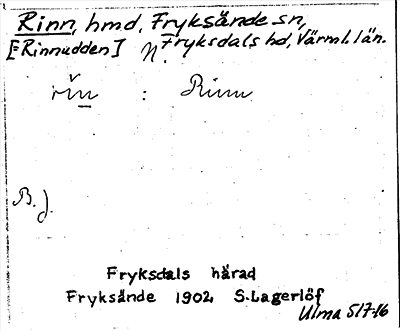 Rinn, hmd, Fryksände sn,
[=Rinnudden] N. Fryksdals hd, Värml. län.
rin̄ : Rinn
B. J.
Fryksdals härad
Fryksände 1902 S. Lagerlöf
Ulma 517:16